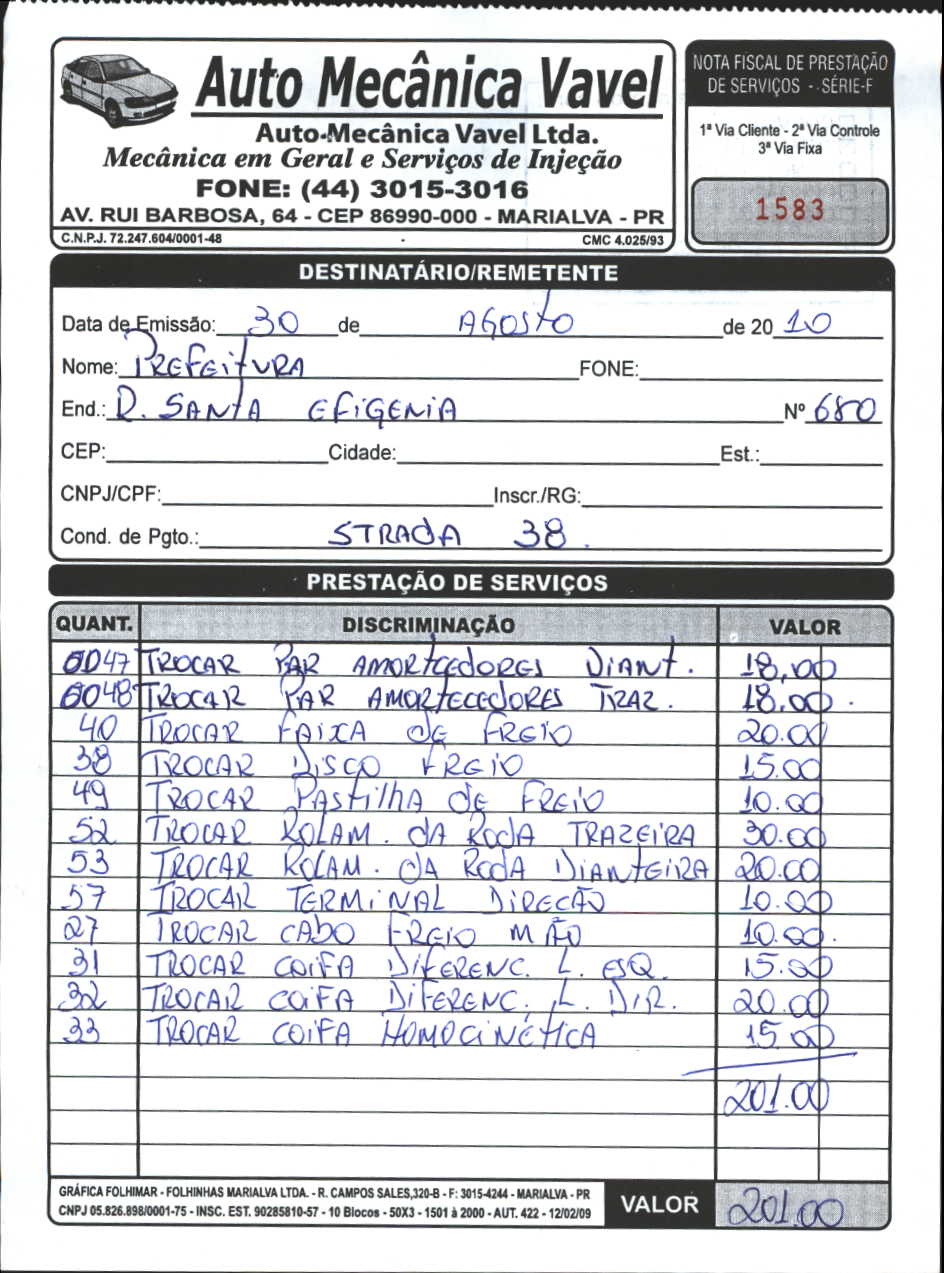 Auto Mecânica Vavel
Auto-Mecânica Vavel Ltda.
Mecânica em Geral e Serviços de Injeção
FONE: (44) 3015-3016
AV. RUI BARBOSA, 64 - CEP 86990-000 - MARIALVA - PR
C.N.P.J. 72.247.604/0001-48 CMC 4.025/93
NOTA FISCAL DE PRESTAÇÃO
DE SERVIÇOS - SÉRIE-F
1ª Via Cliente - 2ª Via Controle
3ª Via Fixa
1583
DESTINATÁRIO/REMETENTE
Data de Emissão: 30 de AGOSTO de 20 10
Nome: PREFEITURA FONE:
End.: R. SANTA EFIGENIA Nº 680
CEP: Cidade: Est.:
CNPJ/CPF: Inscr./RG:
Cond. de Pgto.: STRADA 38.
PRESTAÇÃO DE SERVIÇOS
QUANT. DISCRIMINAÇÃO VALOR
0047 TROCAR PAR AMORTCEDORES DIANT. 18,00
0048 TROCAR PAR AMORTECEDORES TRAZ. 18.00.
40 TROCAR FAIXA DE FREIO 20.00
38 TROCAR DISCO FREIO 15.00
49 TROCAR PASTILHA DE FREIO 10.00
52 TROCAR ROLAM. DA RODA TRAZEIRA 30.00
53 TROCAR ROLAM. DA RODA DIANTEIRA 20.00
57 TROCAR TERMINAL DIRECÃO 10.00
27 TROCAR CABO FREIO MÃO 10.00.
31 TROCAR COIFA DIFERENC. L. ESQ. 15.00
32 TROCAR COIFA DIFERENC. L. DIR. 20.00
33 TROCAR COIFA HOMOCINÉTICA 15.00
201.00
GRÁFICA FOLHIMAR - FOLHINHAS MARIALVA LTDA. - R. CAMPOS SALES,320-B - F: 3015-4244 - MARIALVA - PR
CNPJ 05.826.898/0001-75 - INSC. EST. 90285810-57 - 10 Blocos - 50X3 - 1501 à 2000 - AUT. 422 - 12/02/09
VALOR 201.00